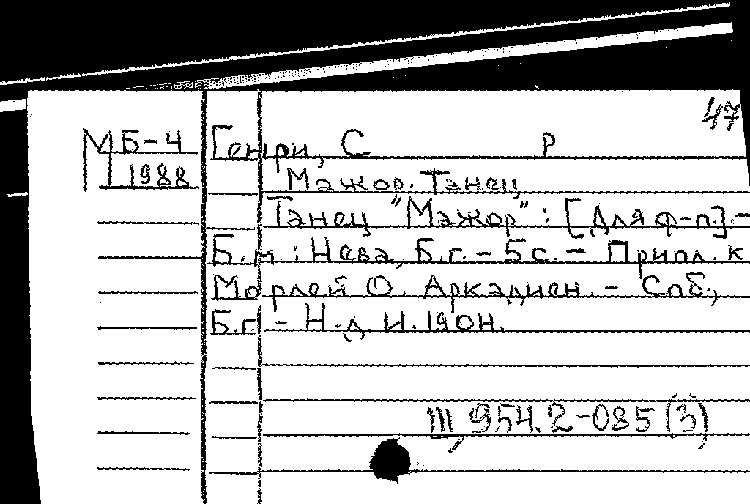 47
М Б-4 Генри, С Р
1988 Мажор. Танец
Танец "Мажор" : [Для ф-п.] -
Б.м : Нева, Б.г. - 5 с. - Прил. к
Морлей О. Аркадиен. - Спб.,
Б.г. - Н.д. И. 1904.
III, 954.2-085 (3)